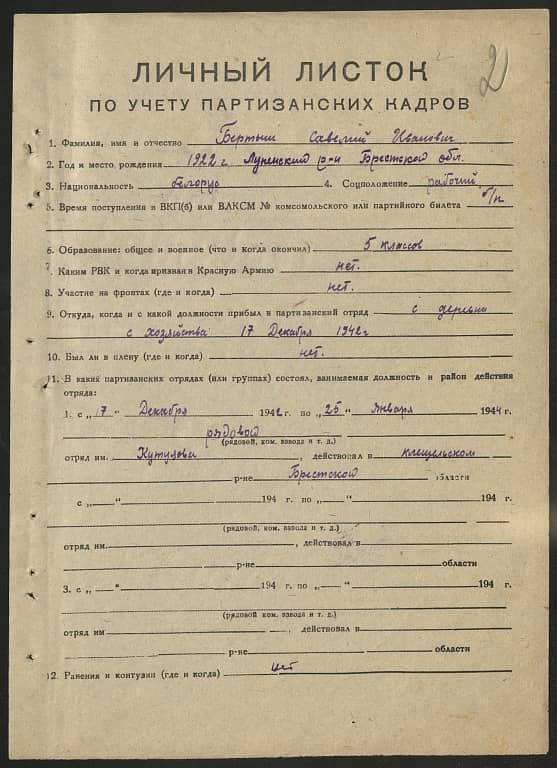 2
ЛИЧНЫЙ ЛИСТОК
ПО УЧЕТУ ПАРТИЗАНСКИХ КАДРОВ
1. Фамилия, имя и отчество Бертыш Савелий Иванович
2. Год и место рождения 1922 г. р-н Брестской обл.
3. Национальность белорус 4. Соцположение рабочий
5. Время поступления в ВКП(б) или ВЛКСМ № комсомольского или партийного билета б/п
6. Образование: общее и военное (что и когда окончил) 5 классов
7. Каким РВК и когда призван в Красную Армию нет.
8. Участие на фронтах (где и когда) нет.
9. Откуда, когда и с какой должности прибыл в партизанский отряд с деревни
с хозяйства 17 Декабря 1942 г
10. Был ли в плену (где и когда) нет.
11. В каких партизанских отрядах (или группах) состоял, занимаемая должность и район действия
отряда:
1. с „17" Декабря 1942 г. по „25" января 1944 г.
рядовой
(рядовой, ком. взвода и т. д.)
отряд им. Кутузова, действовал в
р-не Брестской области
с „ " 194 г. по „ " 194 г.
(рядовой, ком. взвода и т. д.)
отряд им. , действовал в
р-не области
3. с „ " 194 г. по „ " 194 г.
(рядовой, ком. взвода и т. д.)
отряд им , действовал в
р-не области
12. Ранения и контузии (где и когда) нет